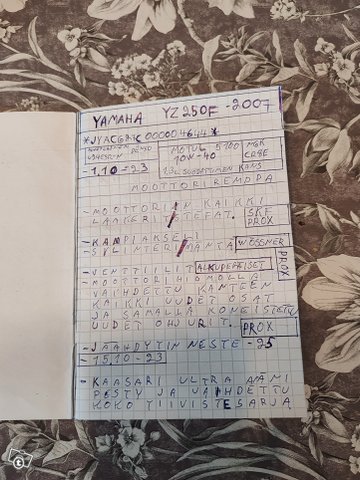 YAMAHA YZ250F -2007
MOTUL 5100
10W-40
-1.10-23
MOOTTORI REMPPA
-MOOTTORIN KAIKKI
LAAKERIT/STEFAT. SKF
PROX
-KAMPIAKSELI
-SYLINTERI/MÄNTÄ WÖSSNER
PROX
-VENTTIILIT ALKUPERÄISET
-MOOTTORIHOMOLLA
VAIHDETTU KANTEEN
KAIKKI UUDET OSAT
JA SAMALLA KONEISTETU
UUDET OHJURIT. PROX
-JÄÄHDYTIN NESTE -25
-15.10-23
-KAASARI ULTRA ÄÄNI
PESTY JA VAIHDETTU
KOKO TIIVISTESARJA